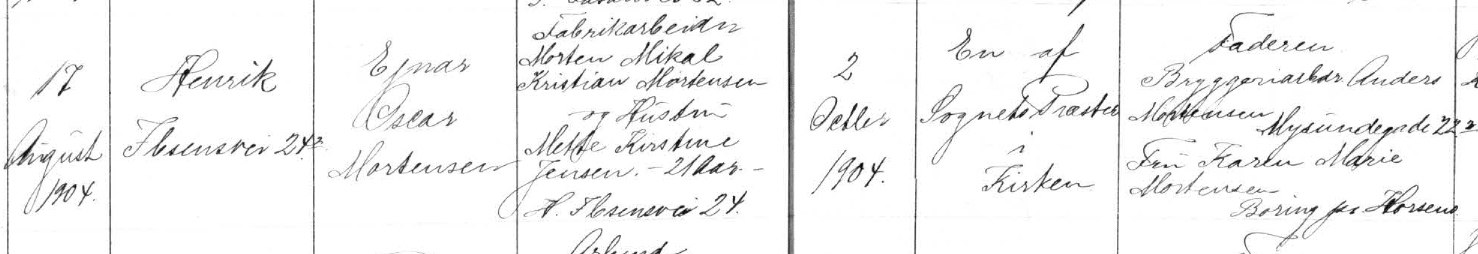 17
August
1904.
Henrik
Ibsensvei 24²
Ejnar
Oscar
Mortensen
Fabrikarbeider
Morten Mikal
Kristian Mortensen
og Hustru
Mette Kirstine
Jensen. - 21 Aar -
H. Ibsensvei 24.
2
Octbr
1904.
En af
Sognets Præster
i
Kirken
Faderen
Bryggeriarbdr Anders
Mortensen
Mysundegade 22²
Fru Karen Marie
Mortensen
Boring pr Horsens